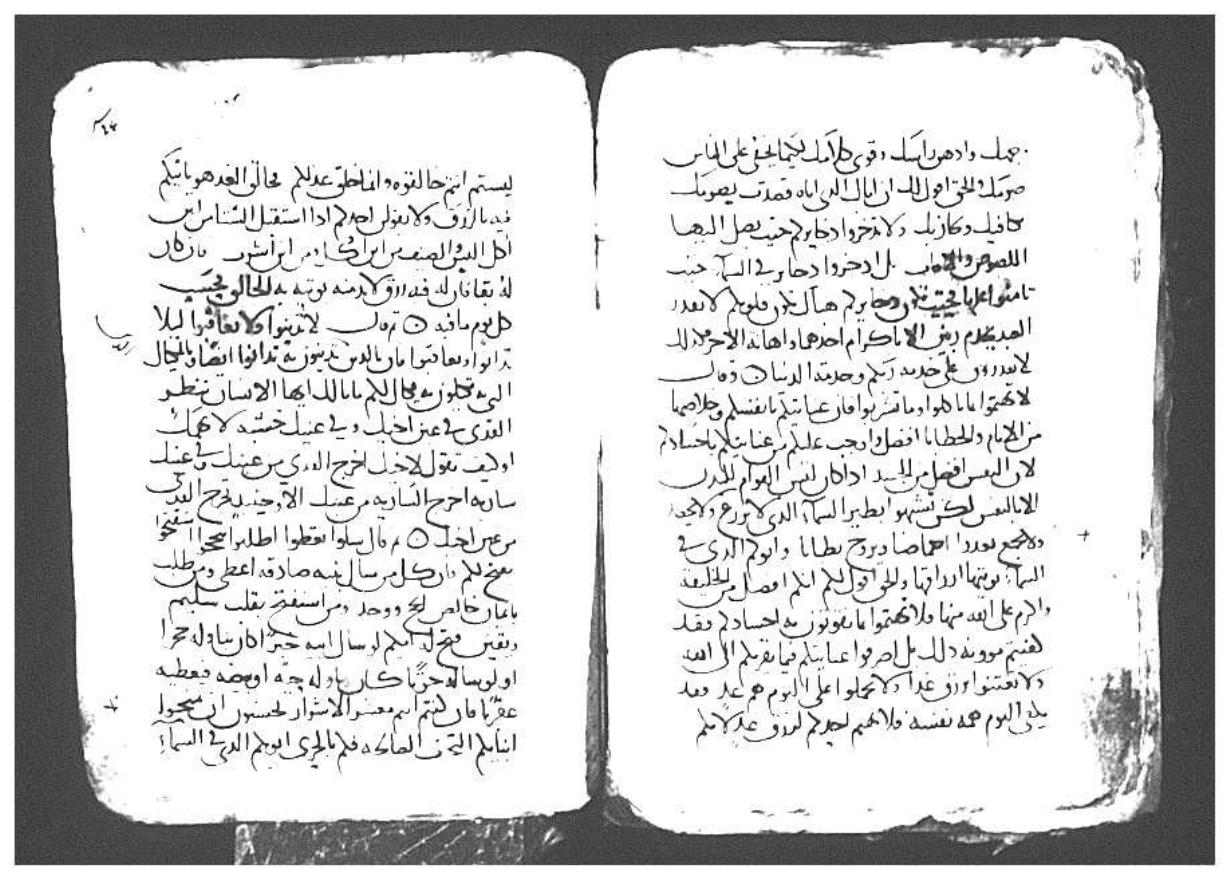 وجهك وادهن راسك وقوي كلامك لكيما يخفى على الناس
صومك والحق اقول لك ان اباك الذي اياه قصدت بصومك
يكافيك ويجازيك ولا تدخروا دخايركم حيث يصل اليها
اللصوص بل ادخروا دخايركم في السماء حيث
تامنوا عليها فحيث تكون دخايركم هناك تكون قلوبكم لا يقدر
العبد يخدم ربين الا باكرام احدهما واهانة الاخر كذلك
لا تقدرون على خدمة ربكم وخدمة الدنيا وقال
لا تهتموا بما تاكلوا وما تشربوا فان عنايتكم بانفسكم وخلاصها
من الاثام والخطايا افضل واوجب عليكم من عنايتكم باجسادكم
لان النفس افضل من الجسد اذا كان ليس القوام للبدن
الا بالنفس لكن تشبهوا بطير السماء الذي لا تزرع ولا تحصد
ولا تجمع تغدوا خماصا وتروح بطانا وابوكم الذي في
السماء يوتيها ارزاقها والحق اقول لكم انكم افضل من الخليقة
واكرم على الله منها فلا تهتموا بما تقوتون به اجسادكم فقد
كفيتم موونة ذلك بل اصرفوا عنايتكم فيما يقربكم الى الله
ولا تقتنوا رزق غدا ولا تحملوا على اليوم هم غد فقد
يكفي اليوم همه نفسه فلا يهتم احدكم لرزق غد لانكم
ليستم انتم خالقوه وانما خلق غد لكم فخالق الغد هو ياتيكم
فيه بالرزق ولا يقولن احدكم اذا استقبل الشتا من اين
اكل البس الصيف من اين اكل ومن اين اشرب فان كان
له بقا فان له فيه رزق لا بد منه يوتيه به الخالق فحسب
كل يوم ما فيه ثم قال لا تدينوا ولا تعاقبوا ليلا
تدانوا وتعاقبوا فان بالدين تدينون به تدانوا ايضا وبالمكيال
الذي تكيلون به يكال لكم ما بالك ايها الانسان تنظر
القذى في عين اخيك وفي عينك خشبة لا تهمك
او كيف تقول لاخيك اخرج القذي من عينك وفي عينك
سارية اخرج السارية من عينك الاو حينيذ تخرج القذى
من عين اخيك ثم قال سلوا تعطوا اطلبوا تنجحوا استفتحوا
يفتح لكم فان كل من سال بنية صادقة اعطي ومن طلب
بايمان خالص نجح ووجد ومن استفتح بقلب سليم
ويقين فتح له ايكم لو ساله ابنه خبزا اكان يناوله حجرا
او لو ساله حوتا كان يناوله حية او بيضة فيعطيه
عقربا فان كنتم انتم معشر الاشرار تحسنون ان تمنحوا
ابنايكم المنح الصالحة فكم بالحري ابوكم الذي في السماء